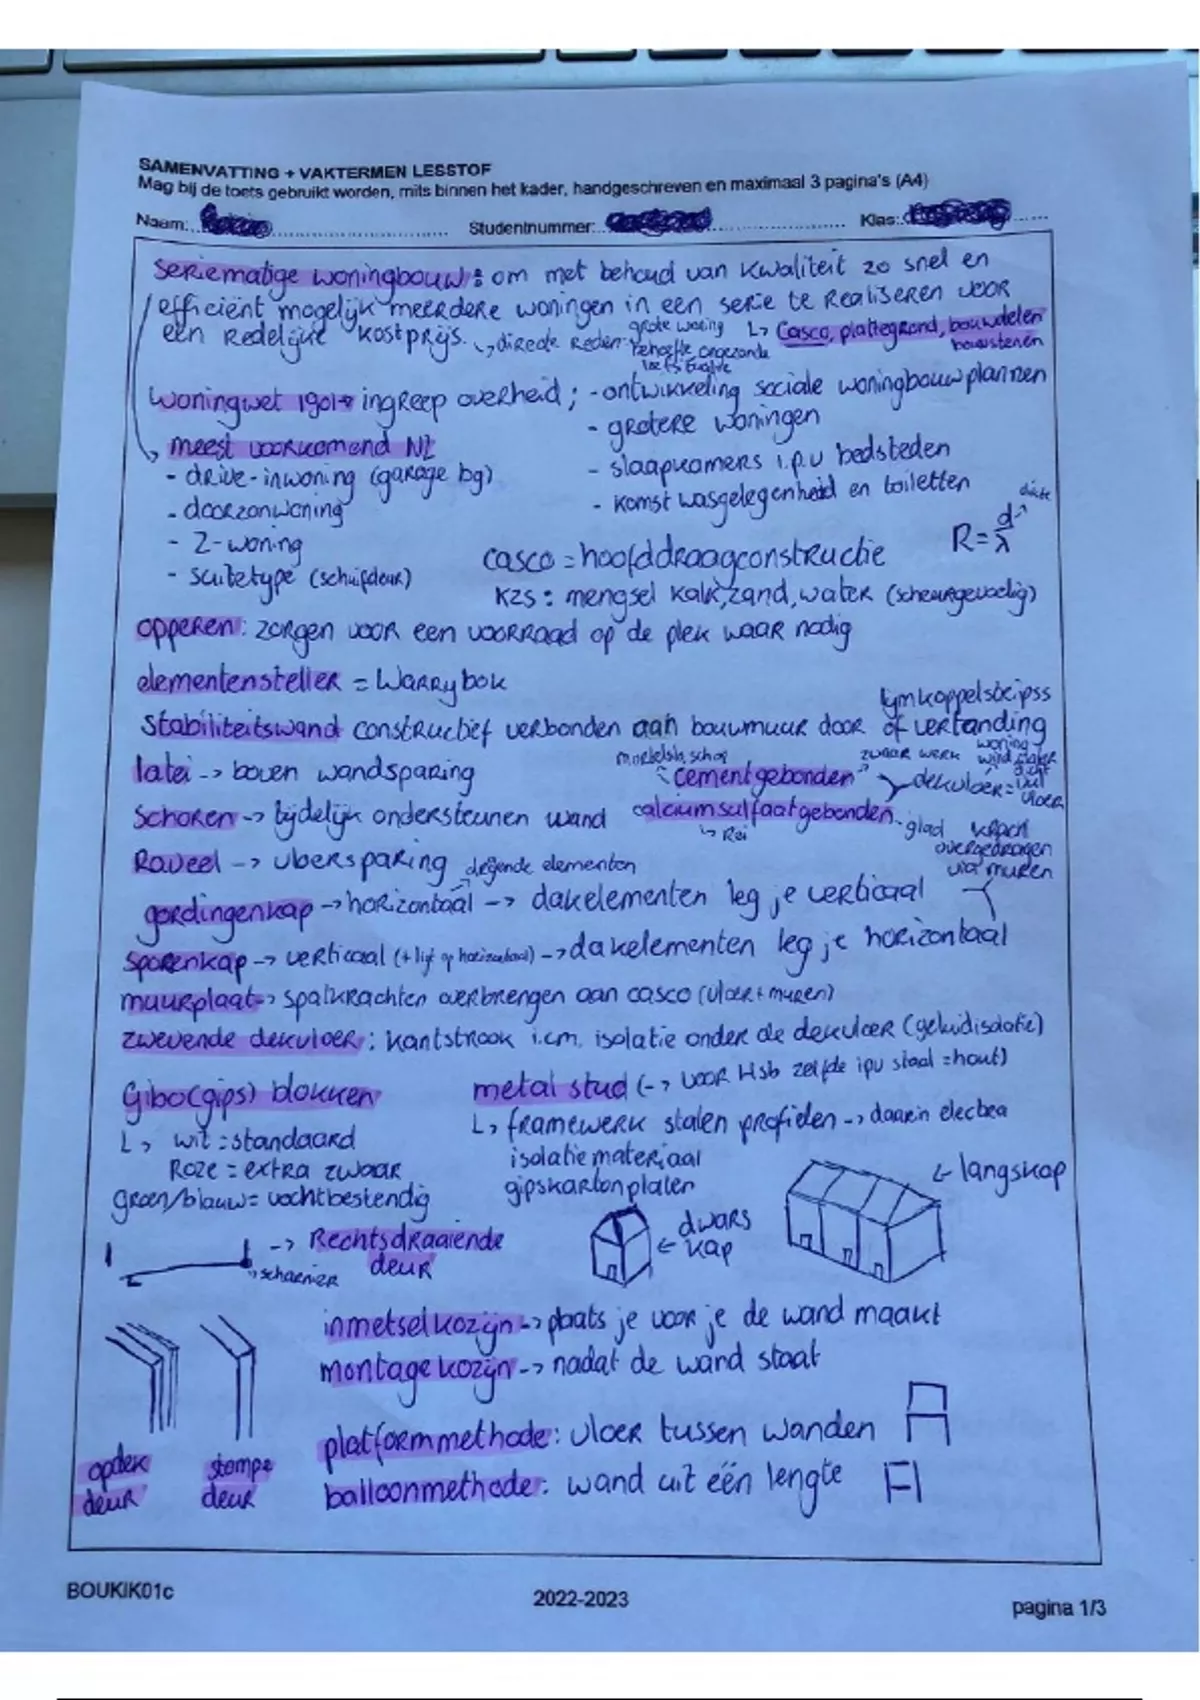 SAMENVATTING + VAKTERMEN LESSTOF
Mag bij de toets gebruikt worden, mits binnen het kader, handgeschreven en maximaal 3 pagina's (A4)
Naam: Studentnummer: Klas:
seriematige woningbouw: om met behoud van kwaliteit zo snel en
efficiënt mogelijk meerdere woningen in een serie te realiseren voor
een redelijke kostprijs. -> directe reden: grote woning behoefte, ongezonde L> Casco, plattegrond, bouwdelen
bouwstenen
woningwet 1901 -> ingreep overheid; - ontwikkeling sociale woningbouwplannen
- grotere woningen
meest voorkomend NL
- slaapkamers i.p.v bedsteden
- drive-inwoning (garage bg)
- komst wasgelegenheid en toiletten
- doorzonwoning
- Z-woning
- suitetype (schuifdeur)
casco = hoofddraagconstructie
R = d/λ dikte
kzs: mengsel kalk, zand, water (scheurgevoelig)
opperen: zorgen voor een voorraad op de plek waar nodig
elementensteller = Warrybok
lijmkoppelstrips
stabiliteitswand constructief verbonden aan bouwmuur door of vertanding
latei -> boven wandsparing
cementgebonden zwaar werk
dekvloer =
vloer
schoren -> tijdelijk ondersteunen wand
calciumsulfaatgebonden - glad
Raveel -> vloersparing
dragende elementen
krach
overgedragen
via muren
gordingenkap -> horizontaal -> dakelementen leg je verticaal
sporenkap -> verticaal (+ligt op horizontaal) -> dakelementen leg je horizontaal
muurplaat -> spatkrachten overbrengen aan casco (vloer+muren)
zwevende dekvloer: kantstrook i.c.m. isolatie onder de dekvloer (geluidisolatie)
Gibo(gips) blokken
L> wit = standaard
Roze = extra zwaar
groen/blauw = vochtbestendig
metal stud (-> voor Hsb zelfde ipv staal = hout)
L> framewerk stalen profielen -> daarin electra
isolatiemateriaal
gipskartonplaten
<- langskap
<- dwars
kap
-> Rechtsdraaiende
deur
scharnier
inmetselkozijn -> plaats je voor je de wand maakt
montagekozijn -> nadat de wand staat
platformmethode: vloer tussen wanden
balloonmethode: wand uit één lengte
opdek
deur
stompe
deur
BOUKIK01c
2022-2023
pagina 1/3